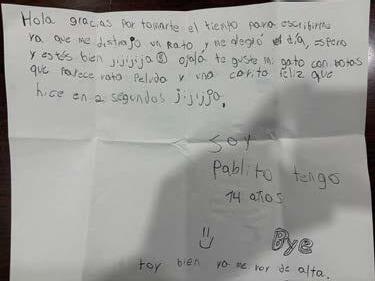 Hola gracias por tomarte el tiempo para escribirme
ya que me distrajo un rato, y me alegró el día, espero
y estés bien jijijija ojalá te guste mi gato con botas
que parece rata peluda y una carita feliz que
hice en 2 segundos jijijja,
Soy
Pablito tengo
14 años
Bye
toy bien ya me voy de alta.